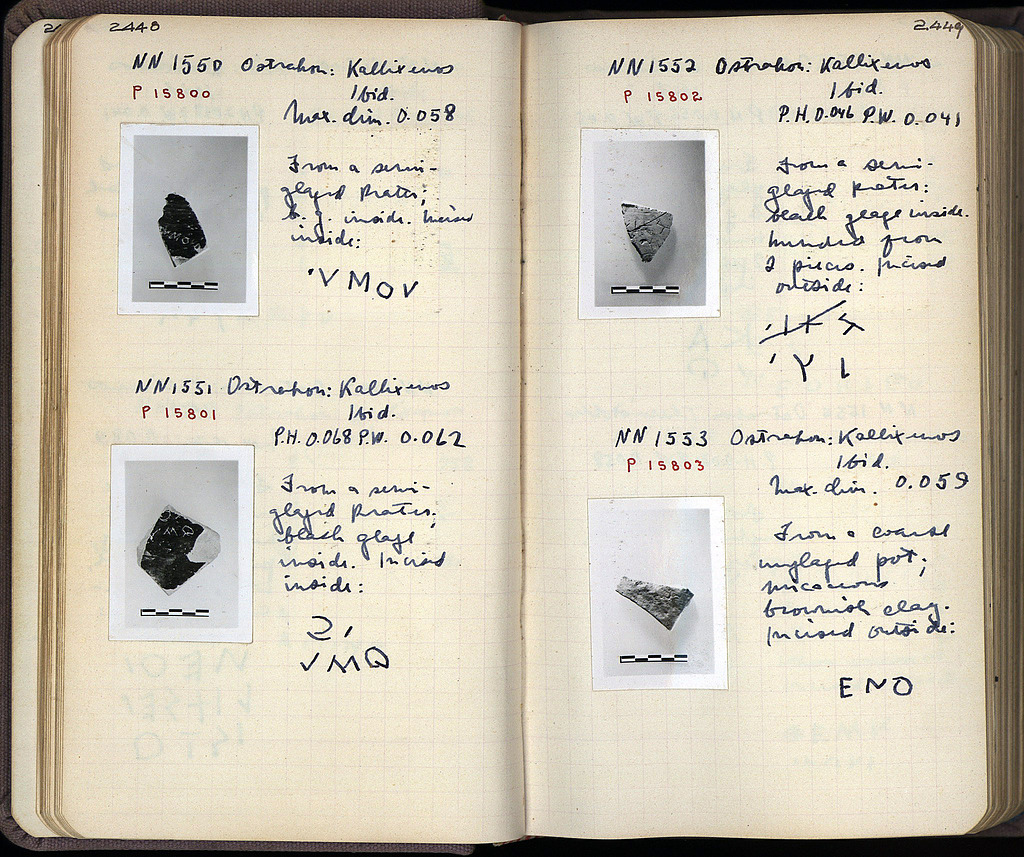 2448
NN 1550 Ostrakon: Kallixenos
P 15800
Ibid.
Max. dim. 0.058
From a semi-
glazed krater;
b. g. inside. Incised
inside:
'VMOV
NN 1551 Ostrakon: Kallixenos
P 15801
Ibid.
P.H. 0.068 P.W. 0.062
From a semi-
glazed krater;
black glaze
inside. Incised
inside:
VMO
2449
NN 1552 Ostrakon: Kallixenos
P 15802
Ibid.
P.H. 0.046 P.W. 0.041
From a semi-
glazed krater:
black glaze inside.
Mended from
2 pieces. Incised
outside:
' Y I
NN 1553 Ostrakon: Kallixenos
P 15803
Ibid.
Max. dim. 0.059
From a coarse
unglazed pot;
micaceous
brownish clay.
Incised outside:
ENO